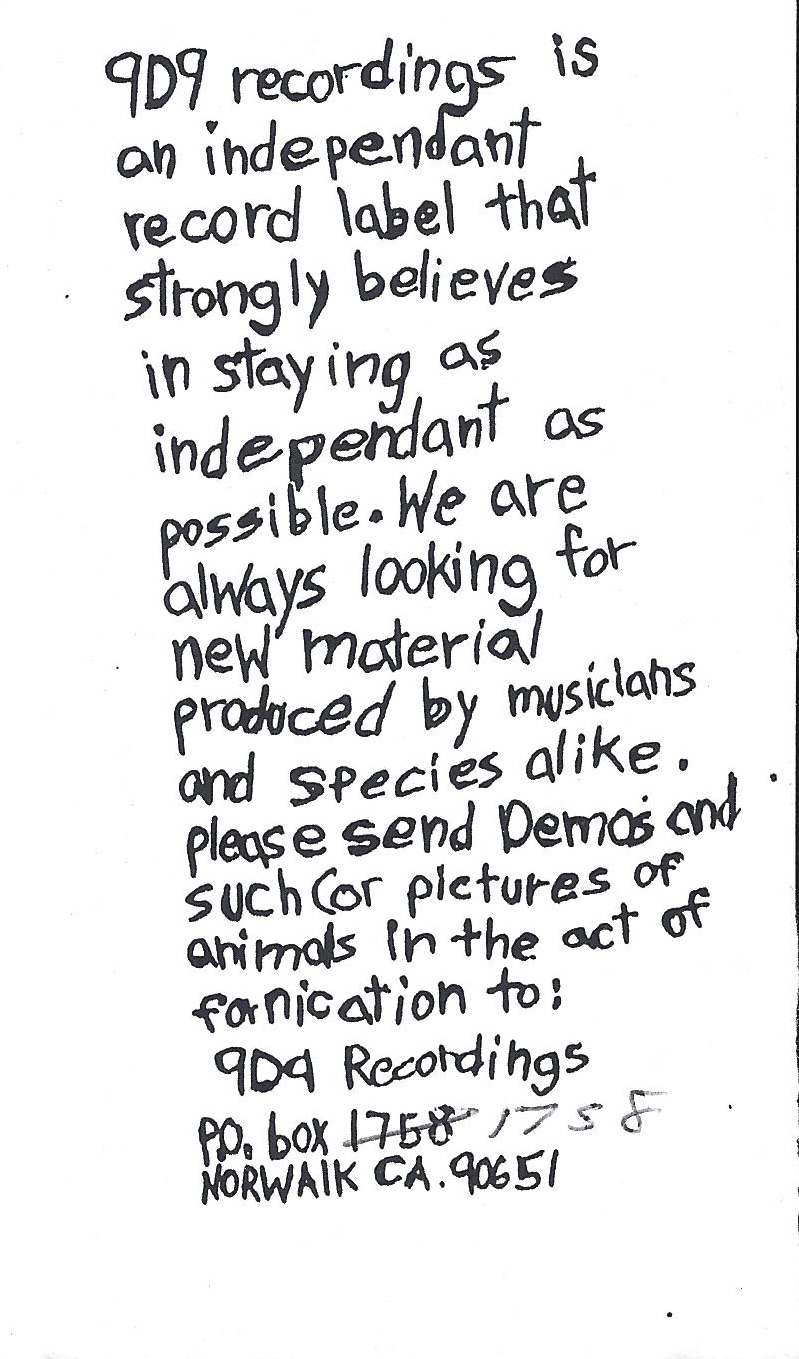 9D9 recordings is
an independant
record label that
strongly believes
in staying as
independant as
possible. We are
always looking for
new material
produced by musicians
and species alike.
please send Demo's and
such (or pictures of
animals in the act of
fornication to:
9D9 Recordings
P.O. box 1758 1758
NORWAlK CA. 90651